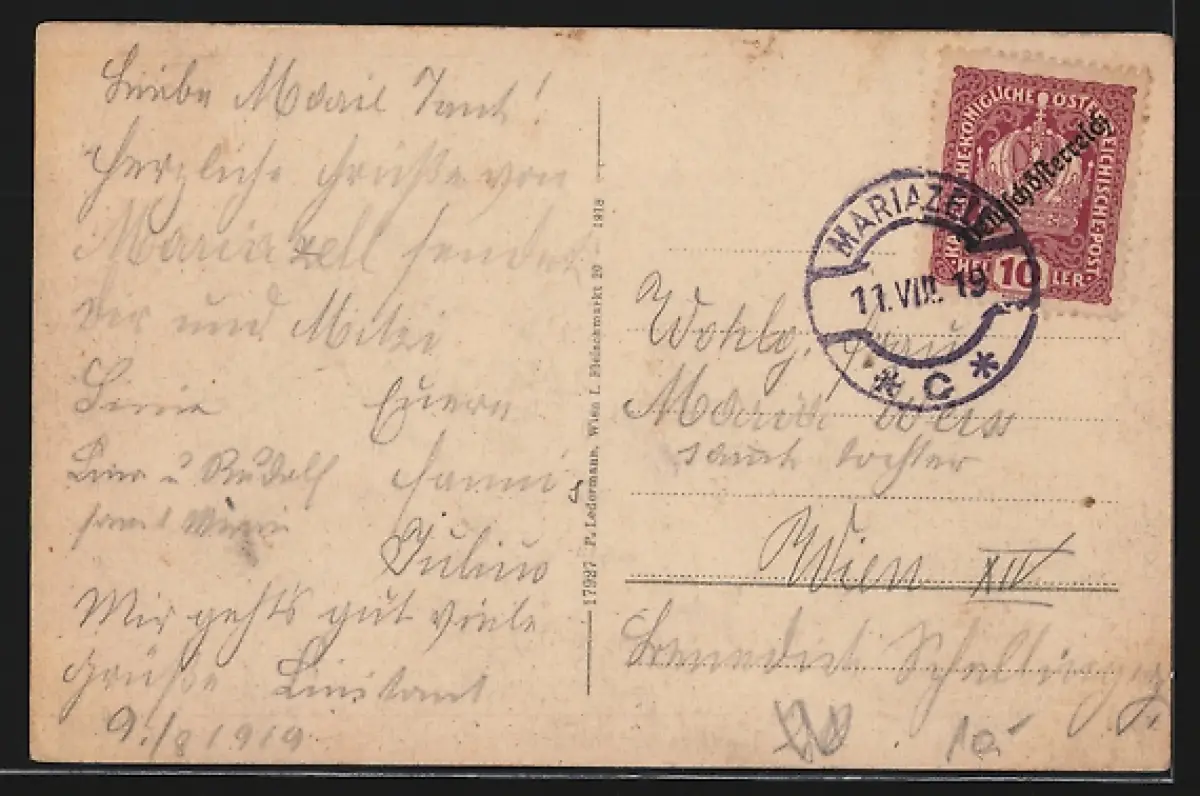 Liebe Marie Tant!
Herzliche Grüße von
Mariazell sendet
Dir und Mitzi
Euere
u Rudolf Fanni
samt
Julius
Mir gehts gut viele
Grüße Linitant
9./8 1919
17927 P. Ledermann, Wien I. Fleischmarkt 20 1918
KAISERLICHE KÖNIGLICHE ÖSTERREICHISCHE POST
Deutschösterreich
HELLER 10
MARIAZELL
11.VIII.19
* C *
Wohlg. Frau
Marie Weiss
samt Tochter
Wien XIV
Benedict
10